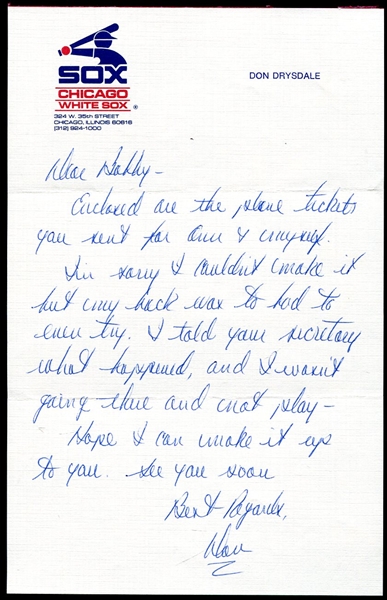 SOX
CHICAGO
WHITE SOX ®
324 W. 35th STREET
CHICAGO, ILLINOIS 60616
(312) 924-1000
DON DRYSDALE
Dear Bobby -
Enclosed are the plane tickets
you sent for Ann & myself.
I'm sorry I couldn't make it
but my back was to bad to
even try. I told your secretary
what happened, and I wasn't
going there and not play -
Hope I can make it up
to you. See you soon
Best Regards,
Don